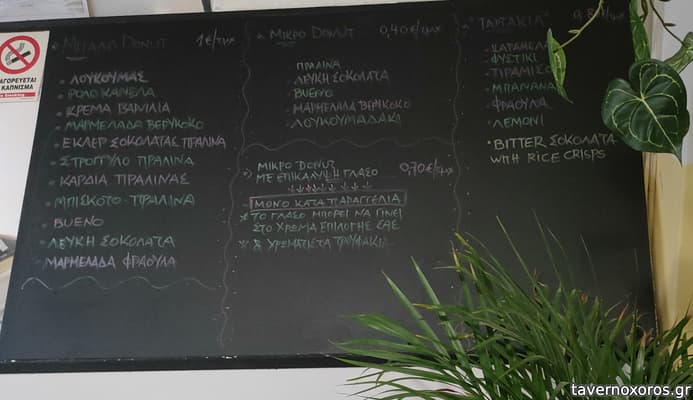 ΑΓΟΡΕΥΕΤΑΙ
ΚΑΠΝΙΣΜΑ
ΜΕΓΑΛΟ DONUT 1€/τμχ
ΛΟΥΚΟΥΜΑΣ
ΡΟΛΟ ΚΑΝΕΛΑ
ΚΡΕΜΑ ΒΑΝΙΛΙΑ
ΜΑΡΜΕΛΑΔΑ ΒΕΡΥΚΟΚΟ
ΕΚΛΕΡ ΣΟΚΟΛΑΤΑΣ ΠΡΑΛΙΝΑ
ΣΤΡΟΓΓΥΛΟ ΠΡΑΛΙΝΑ
ΚΑΡΔΙΑ ΠΡΑΛΙΝΑΣ
ΜΠΙΣΚΟΤΟ-ΠΡΑΛΙΝΑ
BUENO
ΛΕΥΚΗ ΣΟΚΟΛΑΤΑ
ΜΑΡΜΕΛΑΔΑ ΦΡΑΟΥΛΑ
ΜΙΚΡΟ DONUT 0,40€/τμχ
ΠΡΑΛΙΝΑ
ΛΕΥΚΗ ΣΟΚΟΛΑΤΑ
BUENO
ΜΑΡΜΕΛΑΔΑ ΒΕΡΥΚΟΚΟ
ΛΟΥΚΟΥΜΑΔΑΚΙ
ΜΙΚΡΟ DONUT
ΜΕ ΕΠΙΚΑΛΥΨΗ ΓΛΑΣΟ 0,70€/τμχ
ΜΟΝΟ ΚΑΤΑ ΠΑΡΑΓΓΕΛΙΑ
* ΤΟ ΓΛΑΣΟ ΜΠΟΡΕΙ ΝΑ ΓΙΝΕΙ
ΣΤΟ ΧΡΩΜΑ ΕΠΙΛΟΓΗΣ ΣΑΣ
* & ΧΡΩΜΑΤΙΣΤΑ ΤΡΟΥΦΑΚΙΑ
"ΤΑΡΤΑΚΙΑ"
ΚΑΡΑΜΕΛΑ
ΦΥΣΤΙΚΙ
ΤΙΡΑΜΙΣΟΥ
ΜΠΑΝΑΝΑ
ΦΡΑΟΥΛΑ
ΛΕΜΟΝΙ
BITTER ΣΟΚΟΛΑΤΑ
WITH RICE CRISPS
tavernoxoros.gr